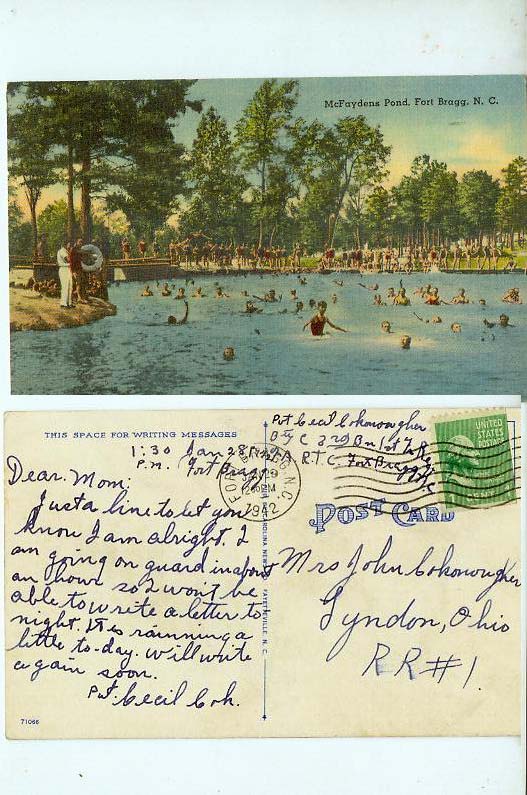 McFaydens Pond, Fort Bragg, N. C.
THIS SPACE FOR WRITING MESSAGES
1:30 Jan 28, 1942
P.M. Fort Bragg
Dear Mom:
Just a line to let you
know I am alright. I
am going on guard in about
an hour so I won't be
able to write a letter to
night. It is rainning a
little to-day. Will write
again soon.
Pvt. Cecil Coh.
71066
Pvt Cecil Cokonougher
Bty C 3rd Bn 1st
F.A. R.T.C. Fort Bragg
N.C.
FORT BRAGG, N.C.
JAN 29
12 30 PM
1942
UNITED
STATES
POSTAGE
POST CARD
CAROLINA NEWS CO. FAYETTEVILLE, N. C.
Mrs John Cokonougher
Lyndon, Ohio
RR#1.